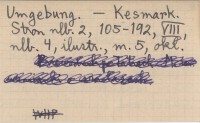 Umgebung. — Kesmark.
Stron nlb. 2, 105-192, VIII,
nlb. 4, ilustr., m. 5, okl.